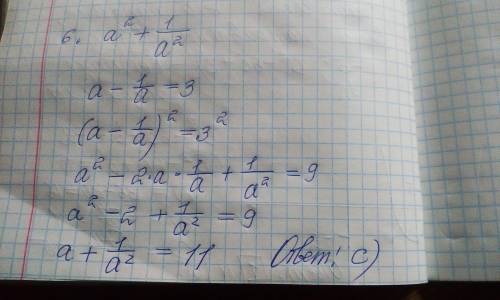 6. a² + 1/a²
a - 1/a = 3
(a - 1/a)² = 3²
a² - 2·a·1/a + 1/a² = 9
a² - 2 + 1/a² = 9
a + 1/a² = 11 Ответ: с)